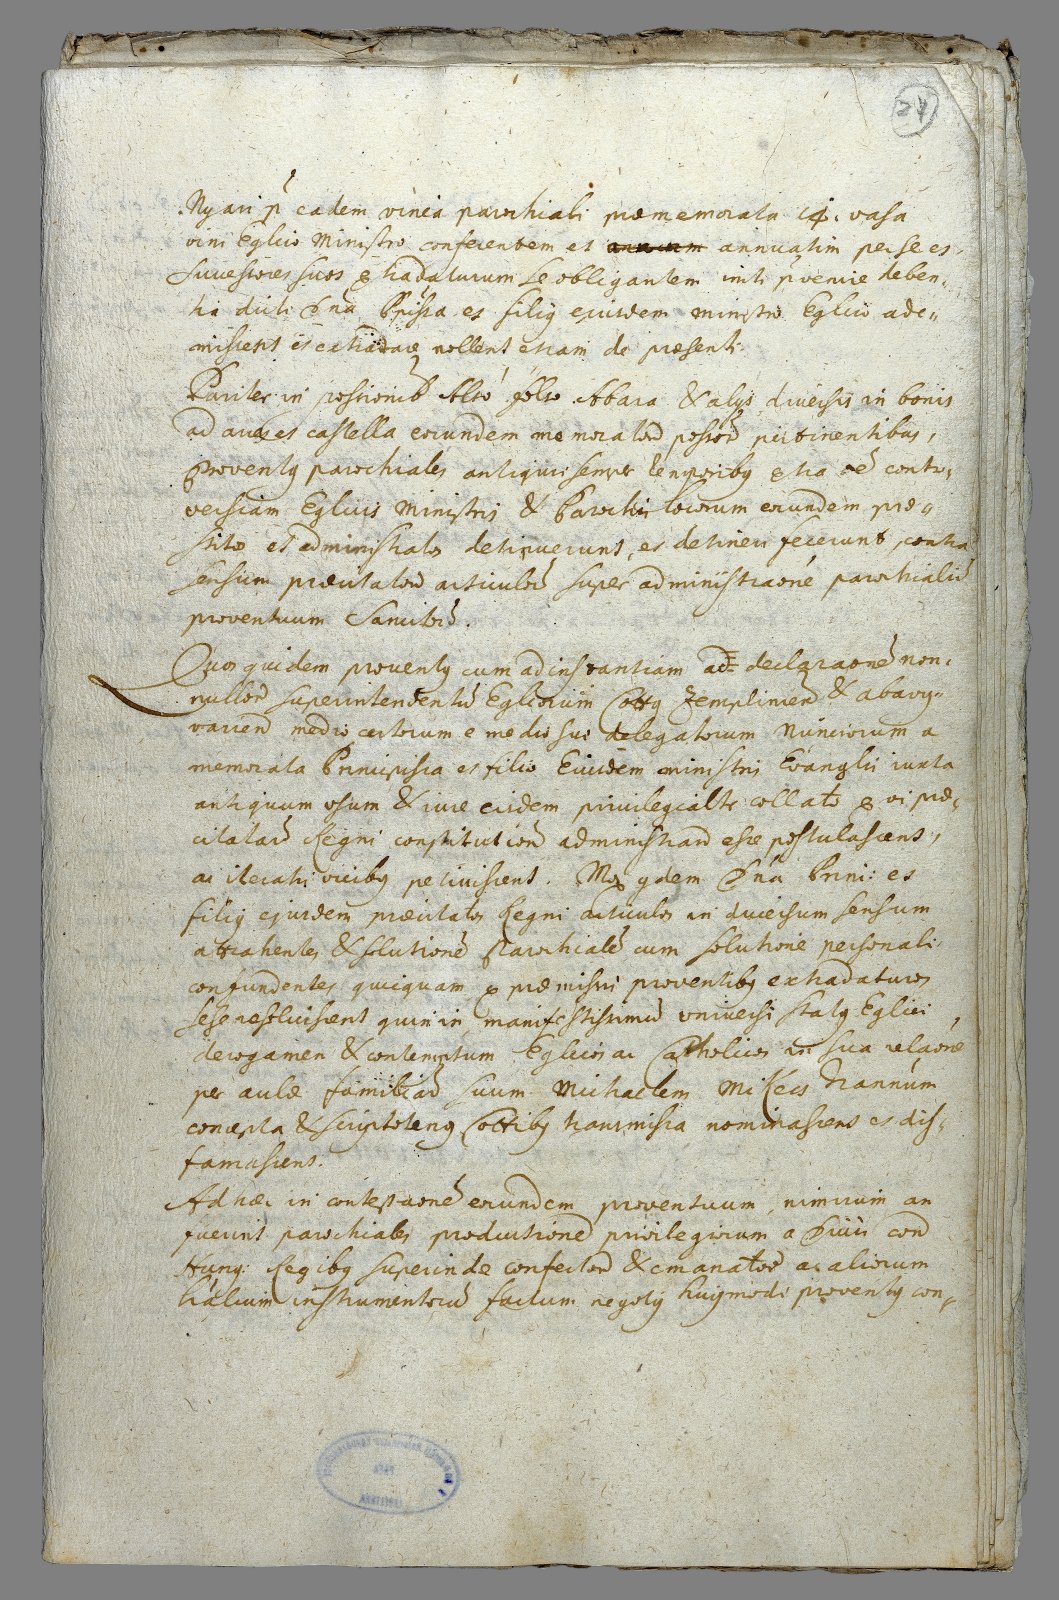 24
Nyari p eadem vinea parochiali praememorata 14. vasa
vini Eglico Ministro conferentem et annuatim per se et
successores suos extradaturum se obligantem inti pvenire deben„
tia dicti Dna Prissa et filiq ejusdem ministro Eglico ade„
missent et extradare nollent etiam de praesenti
Pariter in possionib Alsó Abara & alys diversis in bonis
ad arces castella eorundem memorator possor pertinentibus,
proventq parochiales antiquis semper temporibq extra oem contro„
versiam Eglicis Ministris & Parochis locorum eorundem prae„
stitos et administratos detinuerunt, et detineri fecerunt, contra
sensum praecitator articulor super administraone parochialiu
proventuum Sancitor.
Quos quidem proventq cum ad instantiam ad declaraone non„
nullor superintendentiu Egliarum Cottq Zemplinien & abavy„
varien medio certorum e medio sui delegatorum Nunciorum a
memorata Principissa et filio Eiusdem ministris Evanglii iuxta
antiquum usum & iure eisdem privilegialtr collato ex vi prae„
citatar Regni constitution administrand esse postulassent,
ac iteratis vicibq petivissent. Mox qdem Dna Prini: et
filiq ejusdem praecitatos Regni articulos in diversum sensum
attrahentes & solutione Parochiale cum solutione personali
confundentes quiquam ex praemissis proventibq extradaturos
sese resolvissent quin in manifestissimu universi statq Eglici
derogamen & contemptum Eglicos ac Catholicos in sua relaone
per aulae familiar suum Michaelem Mikecs Nannúm
concepta & scriptotenq Cottibq transmissa nominassent et dif„
famassent.
Ad haec in contestaone eorundem proventuum, nimirum an
fuerint parochiales productione privilegiorum a Divis cond
Hung: Regibq superinde confector & emanator ac aliorum
lralium instrumentoru factum negoty huiqmodi proventq con„